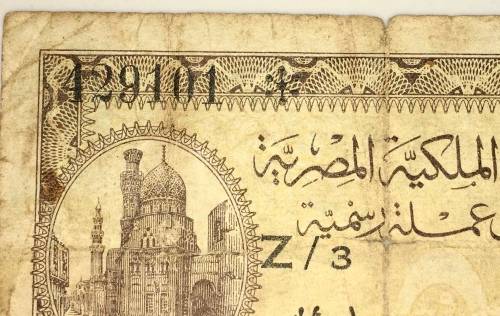 429101
الملكيّة المصريّة
عملة رسميّة
Z/3